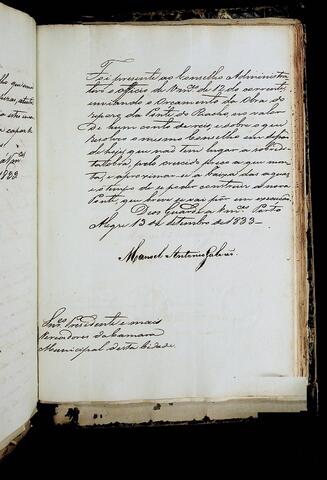 Foi presente ao Conselho Administra-
tivo o officio de Vm.ces de 12 do corrente,
enviando o Orçamento da Obra do
reparo da Ponte do Riacho, no valor
de hum conto de reis, e sobre o que
resolveo o mesmo Conselho em
de hoje, que não tem lugar a
ta obra, pelo crescido preço a que mon-
ta, e aproximar-se a baixa das agoas
e o tempo de se poder construir a nova
Ponte, que breve se vai pôr em execução.
Deos Guarde a Vm.ces Porto
Alegre 13 de Setembro de 1833_
Manoel Antonio Galvão
Snr.es Presidente e mais
Vereadores da Camara
Municipal desta Cidade
1833